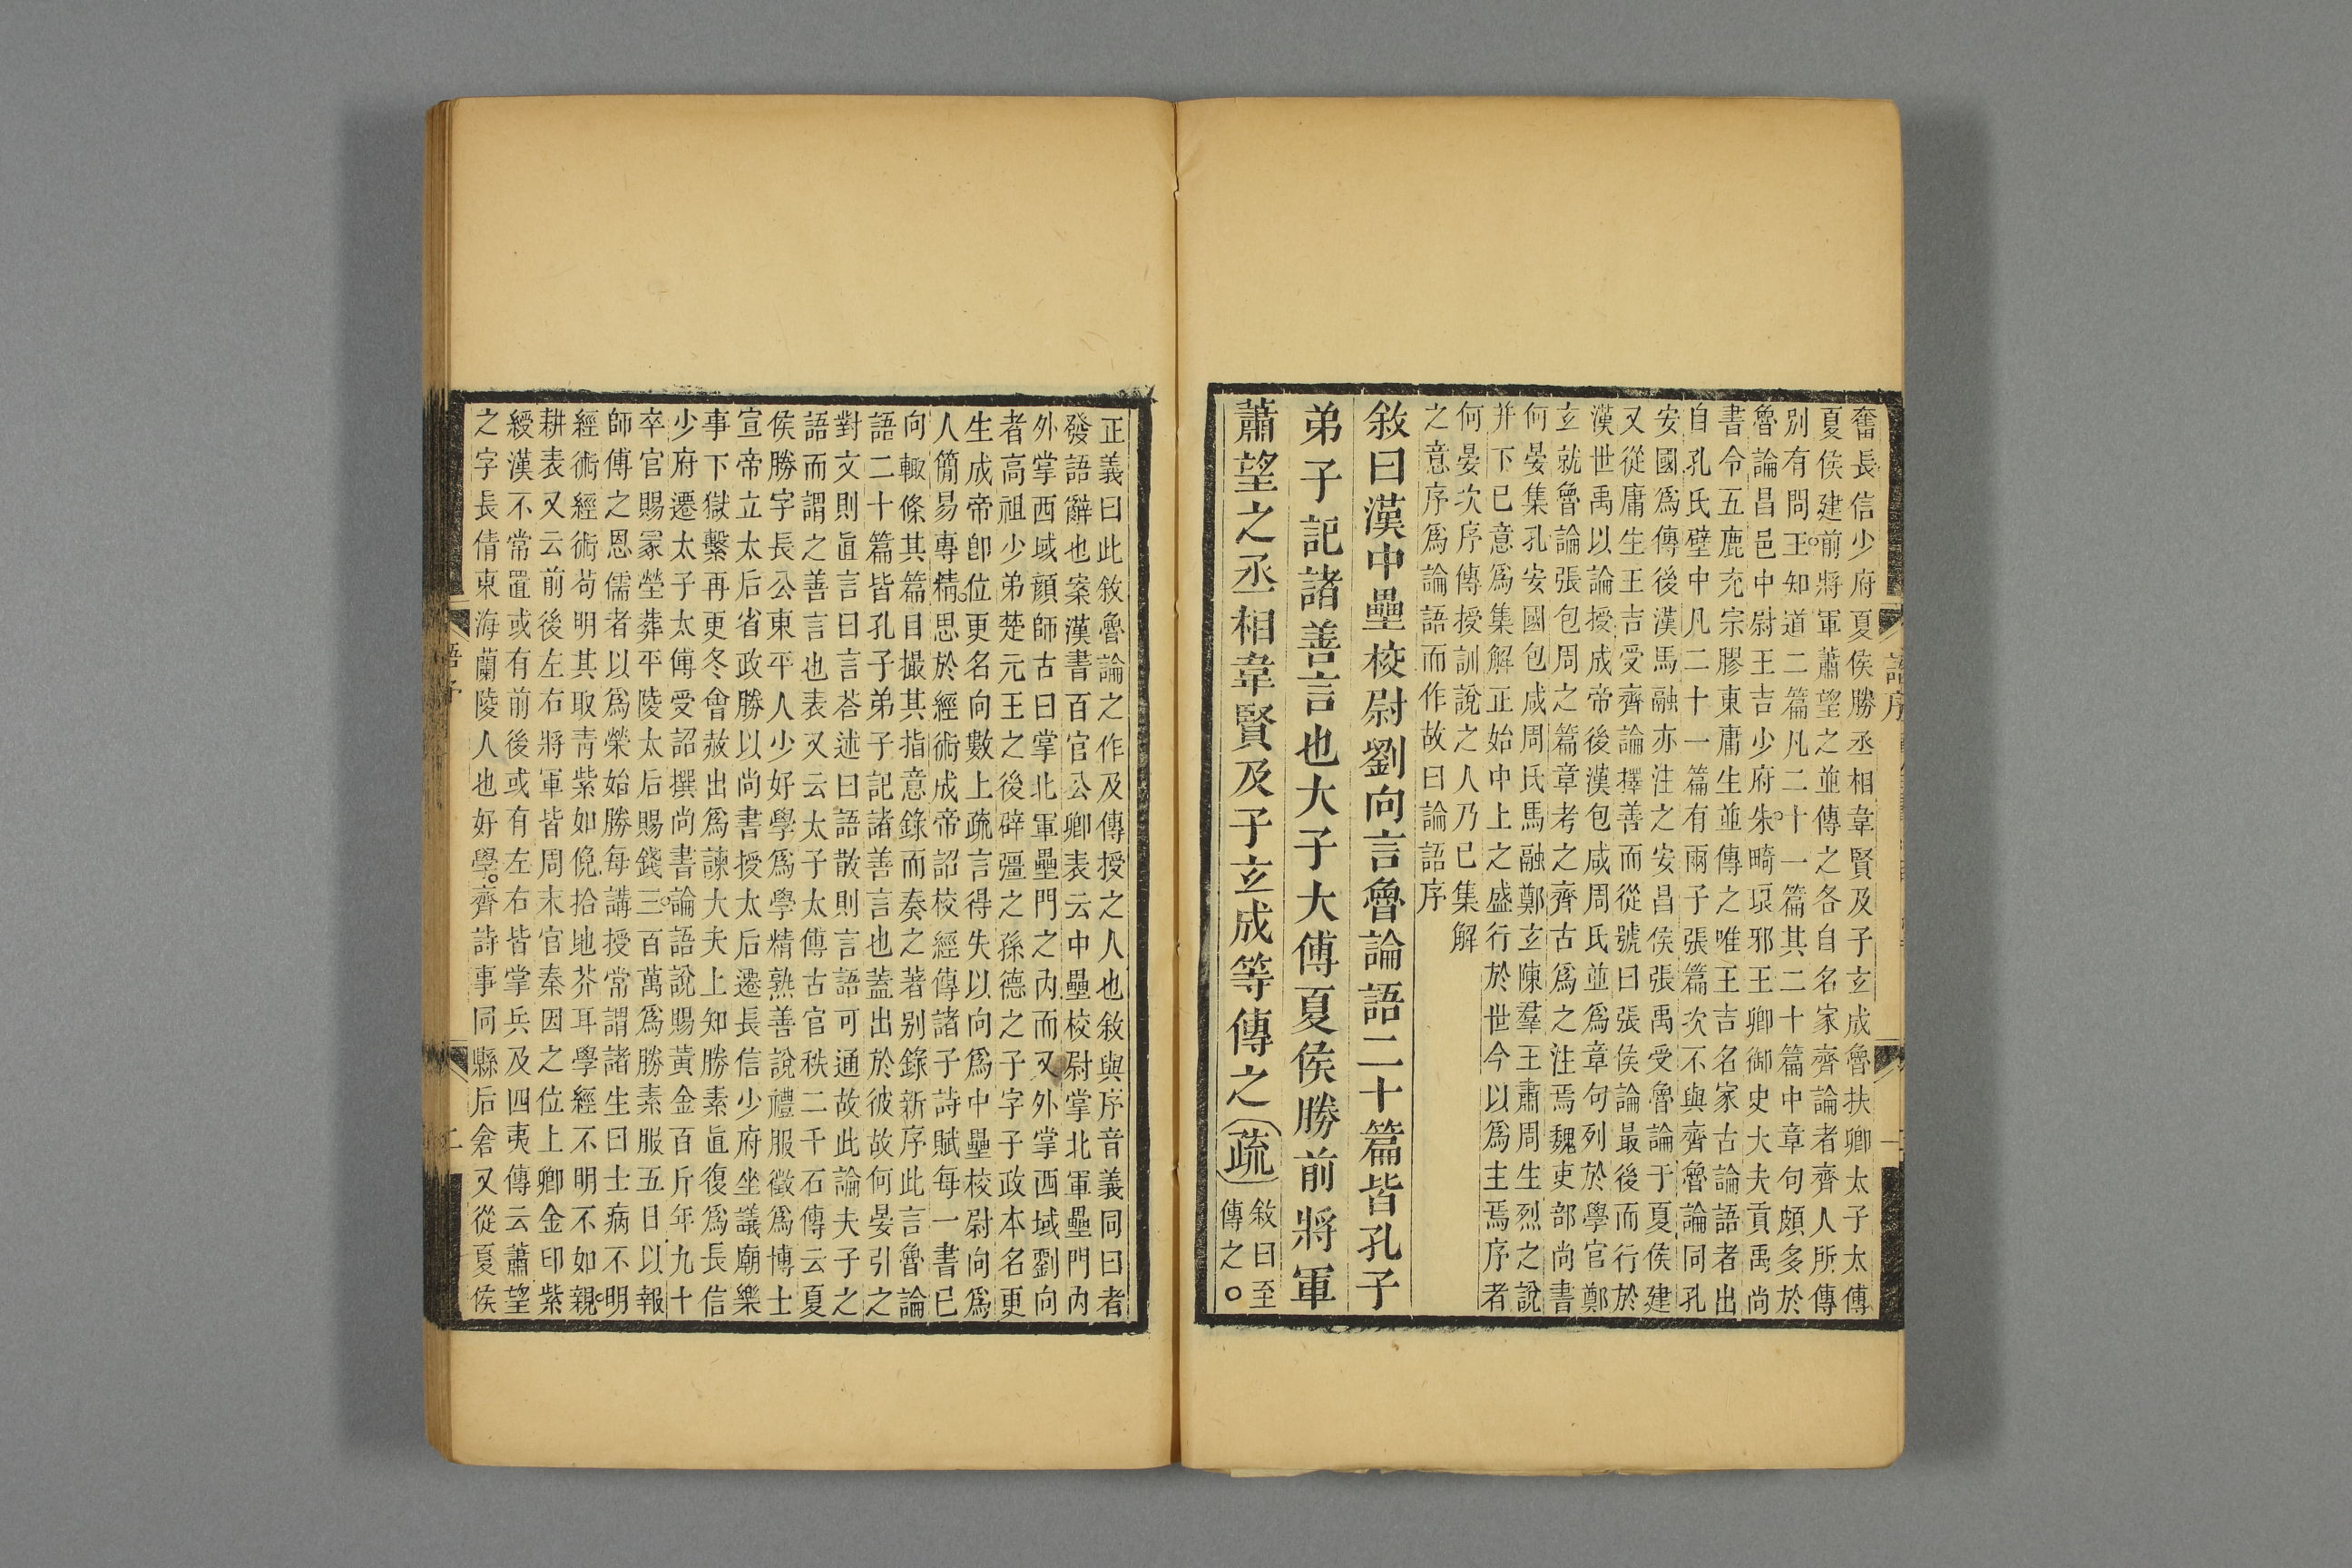 奮長信少府夏侯勝丞相韋賢及子玄成魯扶卿太子太傅
夏侯建前將軍蕭望之並傳之各自名家齊論者齊人所傳
別有問王知道二篇凡二十一篇其二十篇中章句頗多於
魯論昌邑中尉王吉少府朱畸琅邪王卿御史大夫貢禹尚
書令五鹿充宗膠東庸生並傳之唯王吉名家古論語者出
自孔氏壁中凡二十一篇有兩子張篇次不與齊魯論同孔
安國爲傳後漢馬融亦注之安昌侯張禹受魯論于夏侯建
又從庸生王吉受齊論擇善而從號曰張侯論最後而行於
漢世禹以論授成帝後漢包咸周氏並爲章句列於學官鄭
玄就魯論張包周之篇章考之齊古爲之注焉魏吏部尚書
何晏集孔安國包咸周氏馬融鄭玄陳羣王肅周生烈之說
并下已意爲集解正始中上之盛行於世今以爲主焉序者
何晏次序傳授訓說之人乃已集解
之意序爲論語而作故曰論語序
敘曰漢中壘校尉劉向言魯論語二十篇皆孔子
弟子記諸善言也大子大傅夏侯勝前將軍
蕭望之丞相韋賢及子玄成等傳之
疏
敘曰至
傳之○
正義曰此敘魯論之作及傳授之人也敘與序音義同曰者
發語辭也案漢書百官公卿表云中壘校尉掌北軍壘門內
外掌西域顔師古曰掌北軍壘門之內而又外掌西域劉向
者高祖少弟楚元王之後辟彊之孫德之子字子政本名更
生成帝卽位更名向數上疏言得失以向爲中壘校尉向爲
人簡易專精思於經術成帝詔校經傳諸子詩賦每一書已
向輒條其篇目撮其指意錄而奏之著别錄新序此言魯論
語二十篇皆孔子弟子記諸善言也蓋出於彼故何晏引之
對文則直言曰言荅述曰語散則言語可通故此論夫子之
語而謂之善言也表又云太子太傅古官秩二千石傳云夏
侯勝字長公東平人少好學爲學精熟善說禮服徵爲博士
宣帝立太后省政勝以尚書授太后遷長信少府坐議廟樂
事下獄繫再更冬會赦出爲諫大夫上知勝素直復爲長信
少府遷太子太傅受詔撰尚書論語說賜黃金百斤年九十
卒官賜冢塋葬平陵太后賜錢三百萬爲勝素服五日以報
師傅之恩儒者以爲榮始勝每講授常謂諸生曰士病不明
經術經術苟明其取青紫如俛拾地芥耳學經不明不如親
耕表又云前後左右將軍皆周末官秦因之位上卿金印紫
綬漢不常置或有前後或有左右皆掌兵及四夷傳云蕭望
之字長倩東海蘭陵人也好學齊詩事同縣后倉又從夏侯